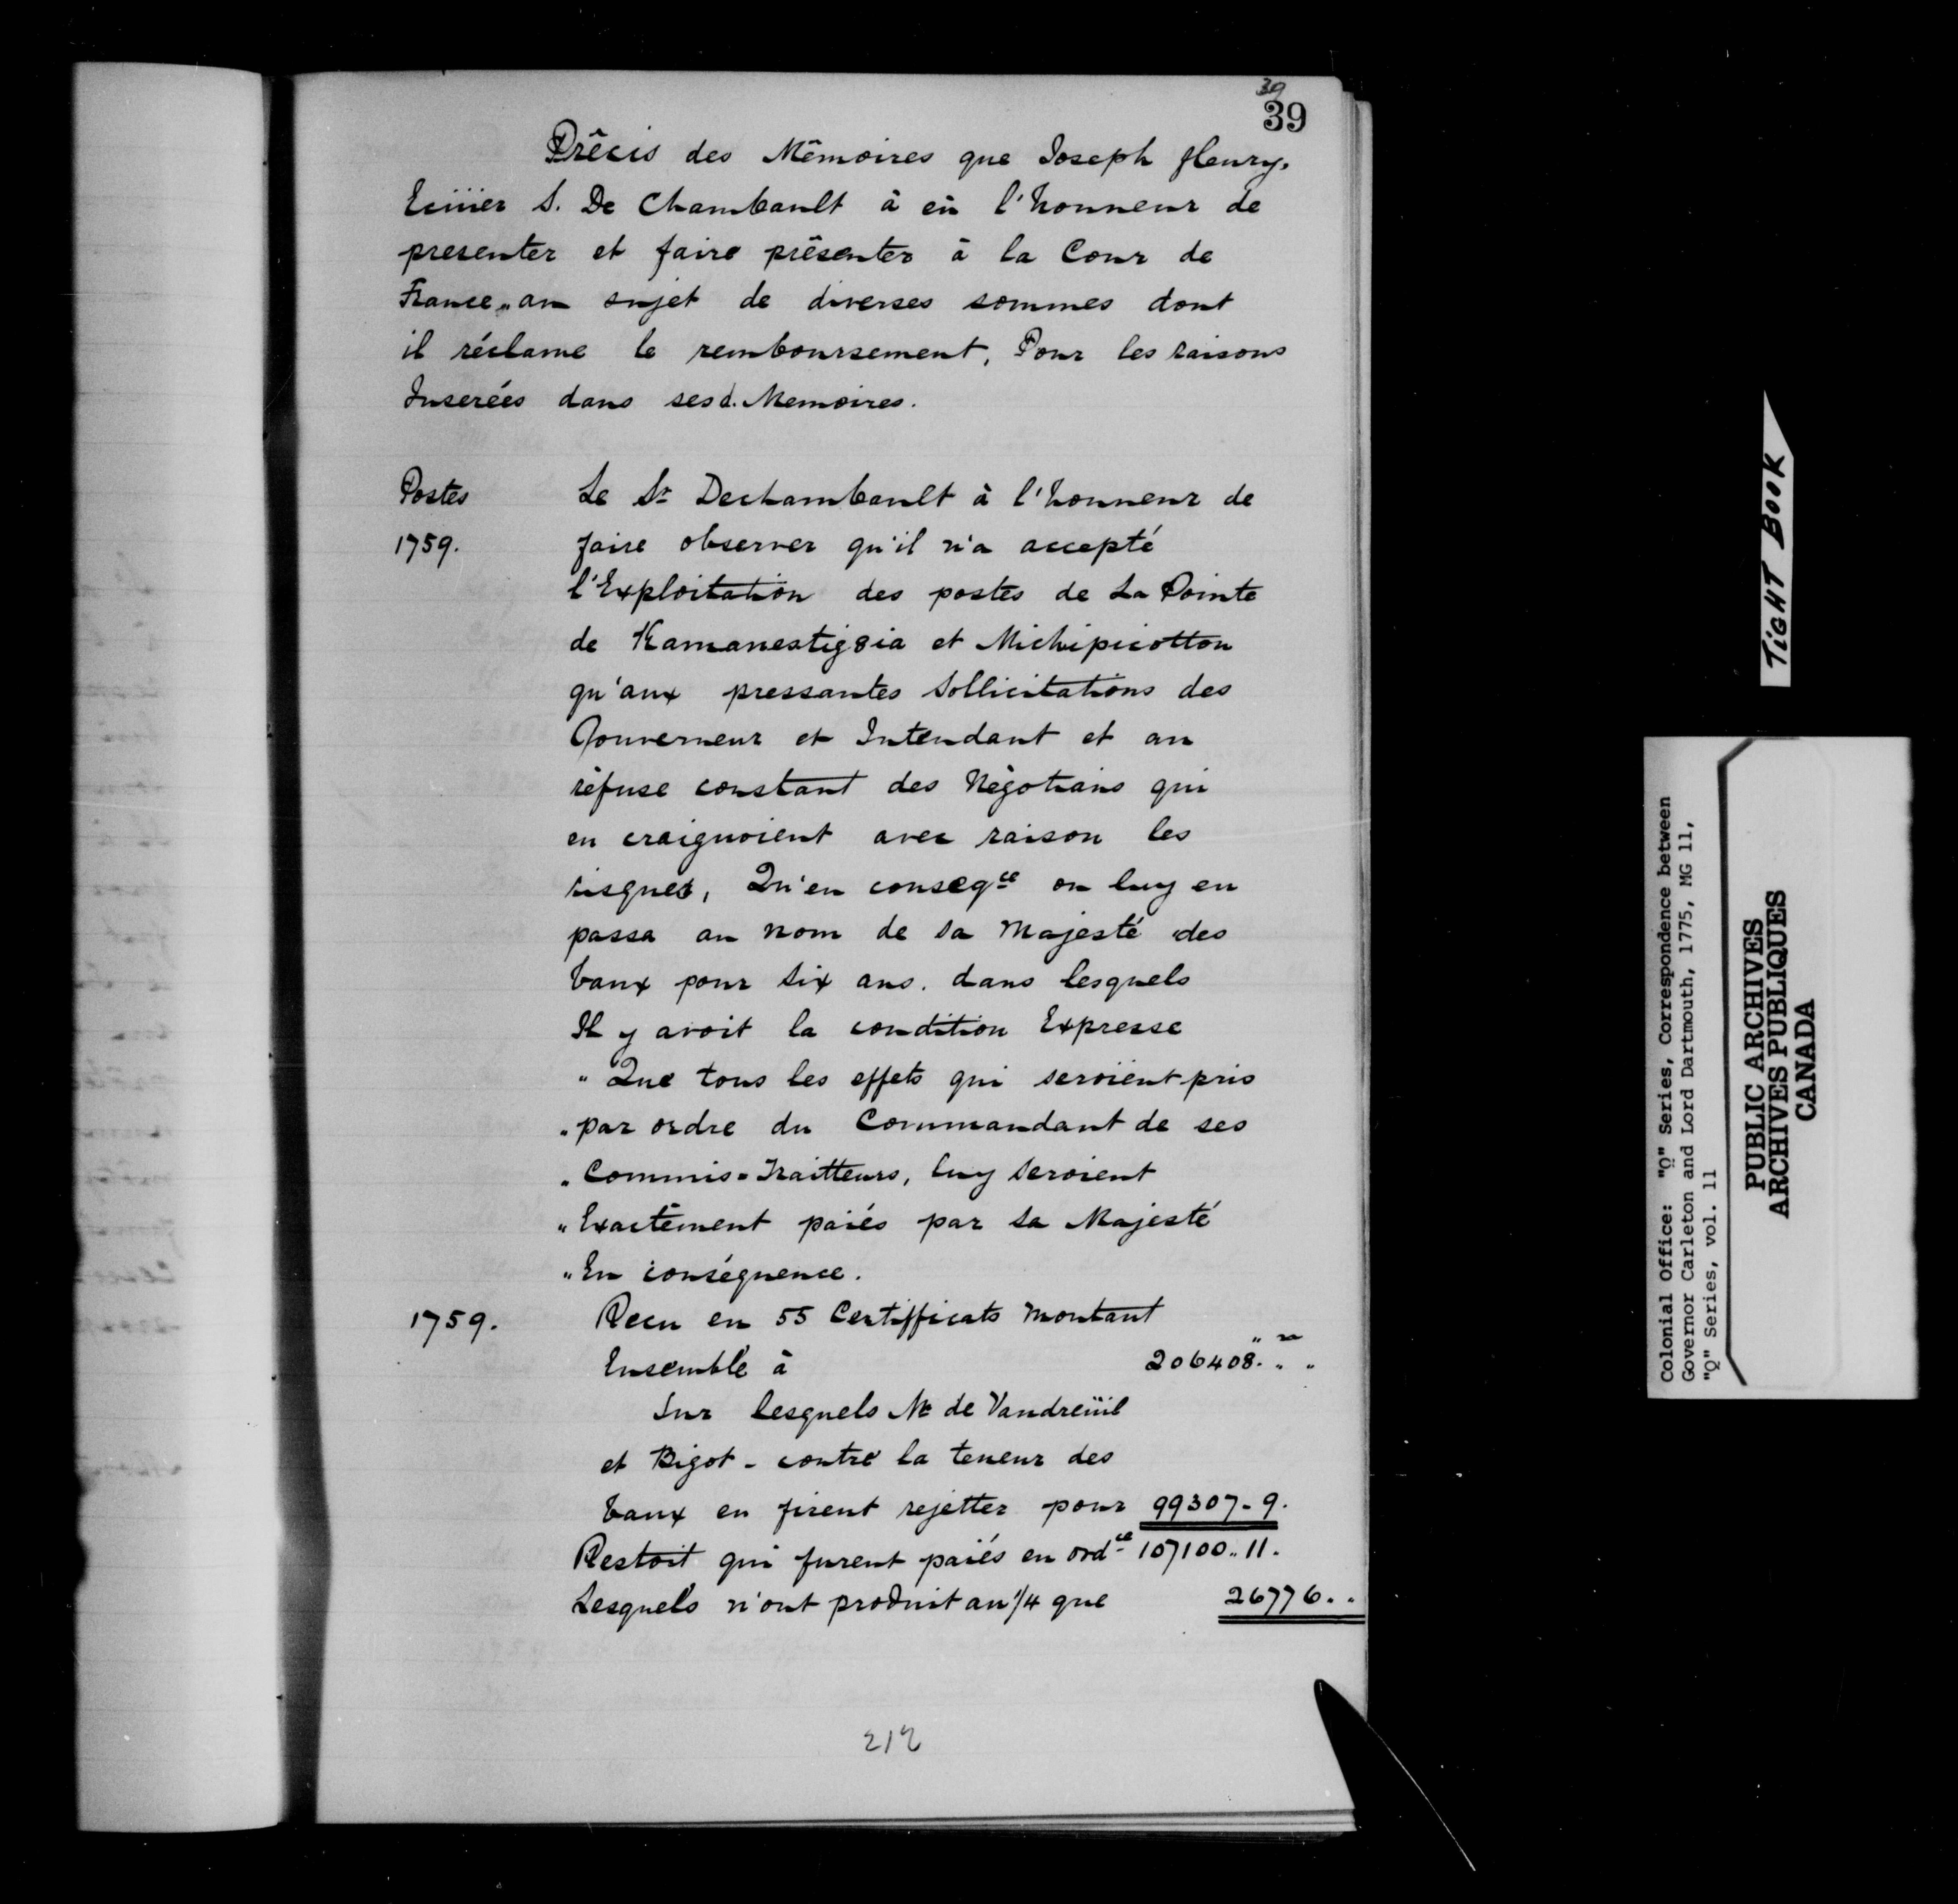 39
39
Prêcis des Mêmoires que Joseph fleury.
Ecüier S. De Chambault à eû l'honneur de
presenter et faire prêsenter à la Cour de
France,, au sujet de diverses sommes dont
il réclame le remboursement, Pour les raisons
Inserées dans sesd. Memoires.
Postes Le Sr Dechambault à l'honneur de
1759. faire observer qu'il n'a accepté
l'Exploitation des postes de La Pointe
de Kamanestig8ia et Michipicotton
qu'aux pressantes sollicitations des
Gouverneur et Intendant et au
rêfuse constant des Nêgotians qui
en craignoient avec raison les
risques, Qu'en conseqce on luy en
passa au nom de sa Majesté des
baux pour six ans. dans lesquels
Il y avoit la condition Expresse
" Que tous les effets qui seroient pris
" par ordre du Commandant de ses
" Commis=Traitteurs, luy seroient
" Exactement paiés par sa Majesté
" En conséquence.
1759. Recu en 55 Certifficats montant
Ensemble à 206408. " "
Sur lesquels Mr de Vaudreüil
et Bigot - contre la teneur des
baux en firent rejetter pour 99307 - 9.
Restoit qui furent paiés en ordce 107100.. 11.
Lesquels n'ont produit au 1/4 que 26776. .
212
TIGHT BOOK
Colonial Office: "Q" Series, Correspondence between
Governor Carleton and Lord Dartmouth, 1775, MG 11,
"Q" Series, vol. 11
PUBLIC ARCHIVES
ARCHIVES PUBLIQUES
CANADA